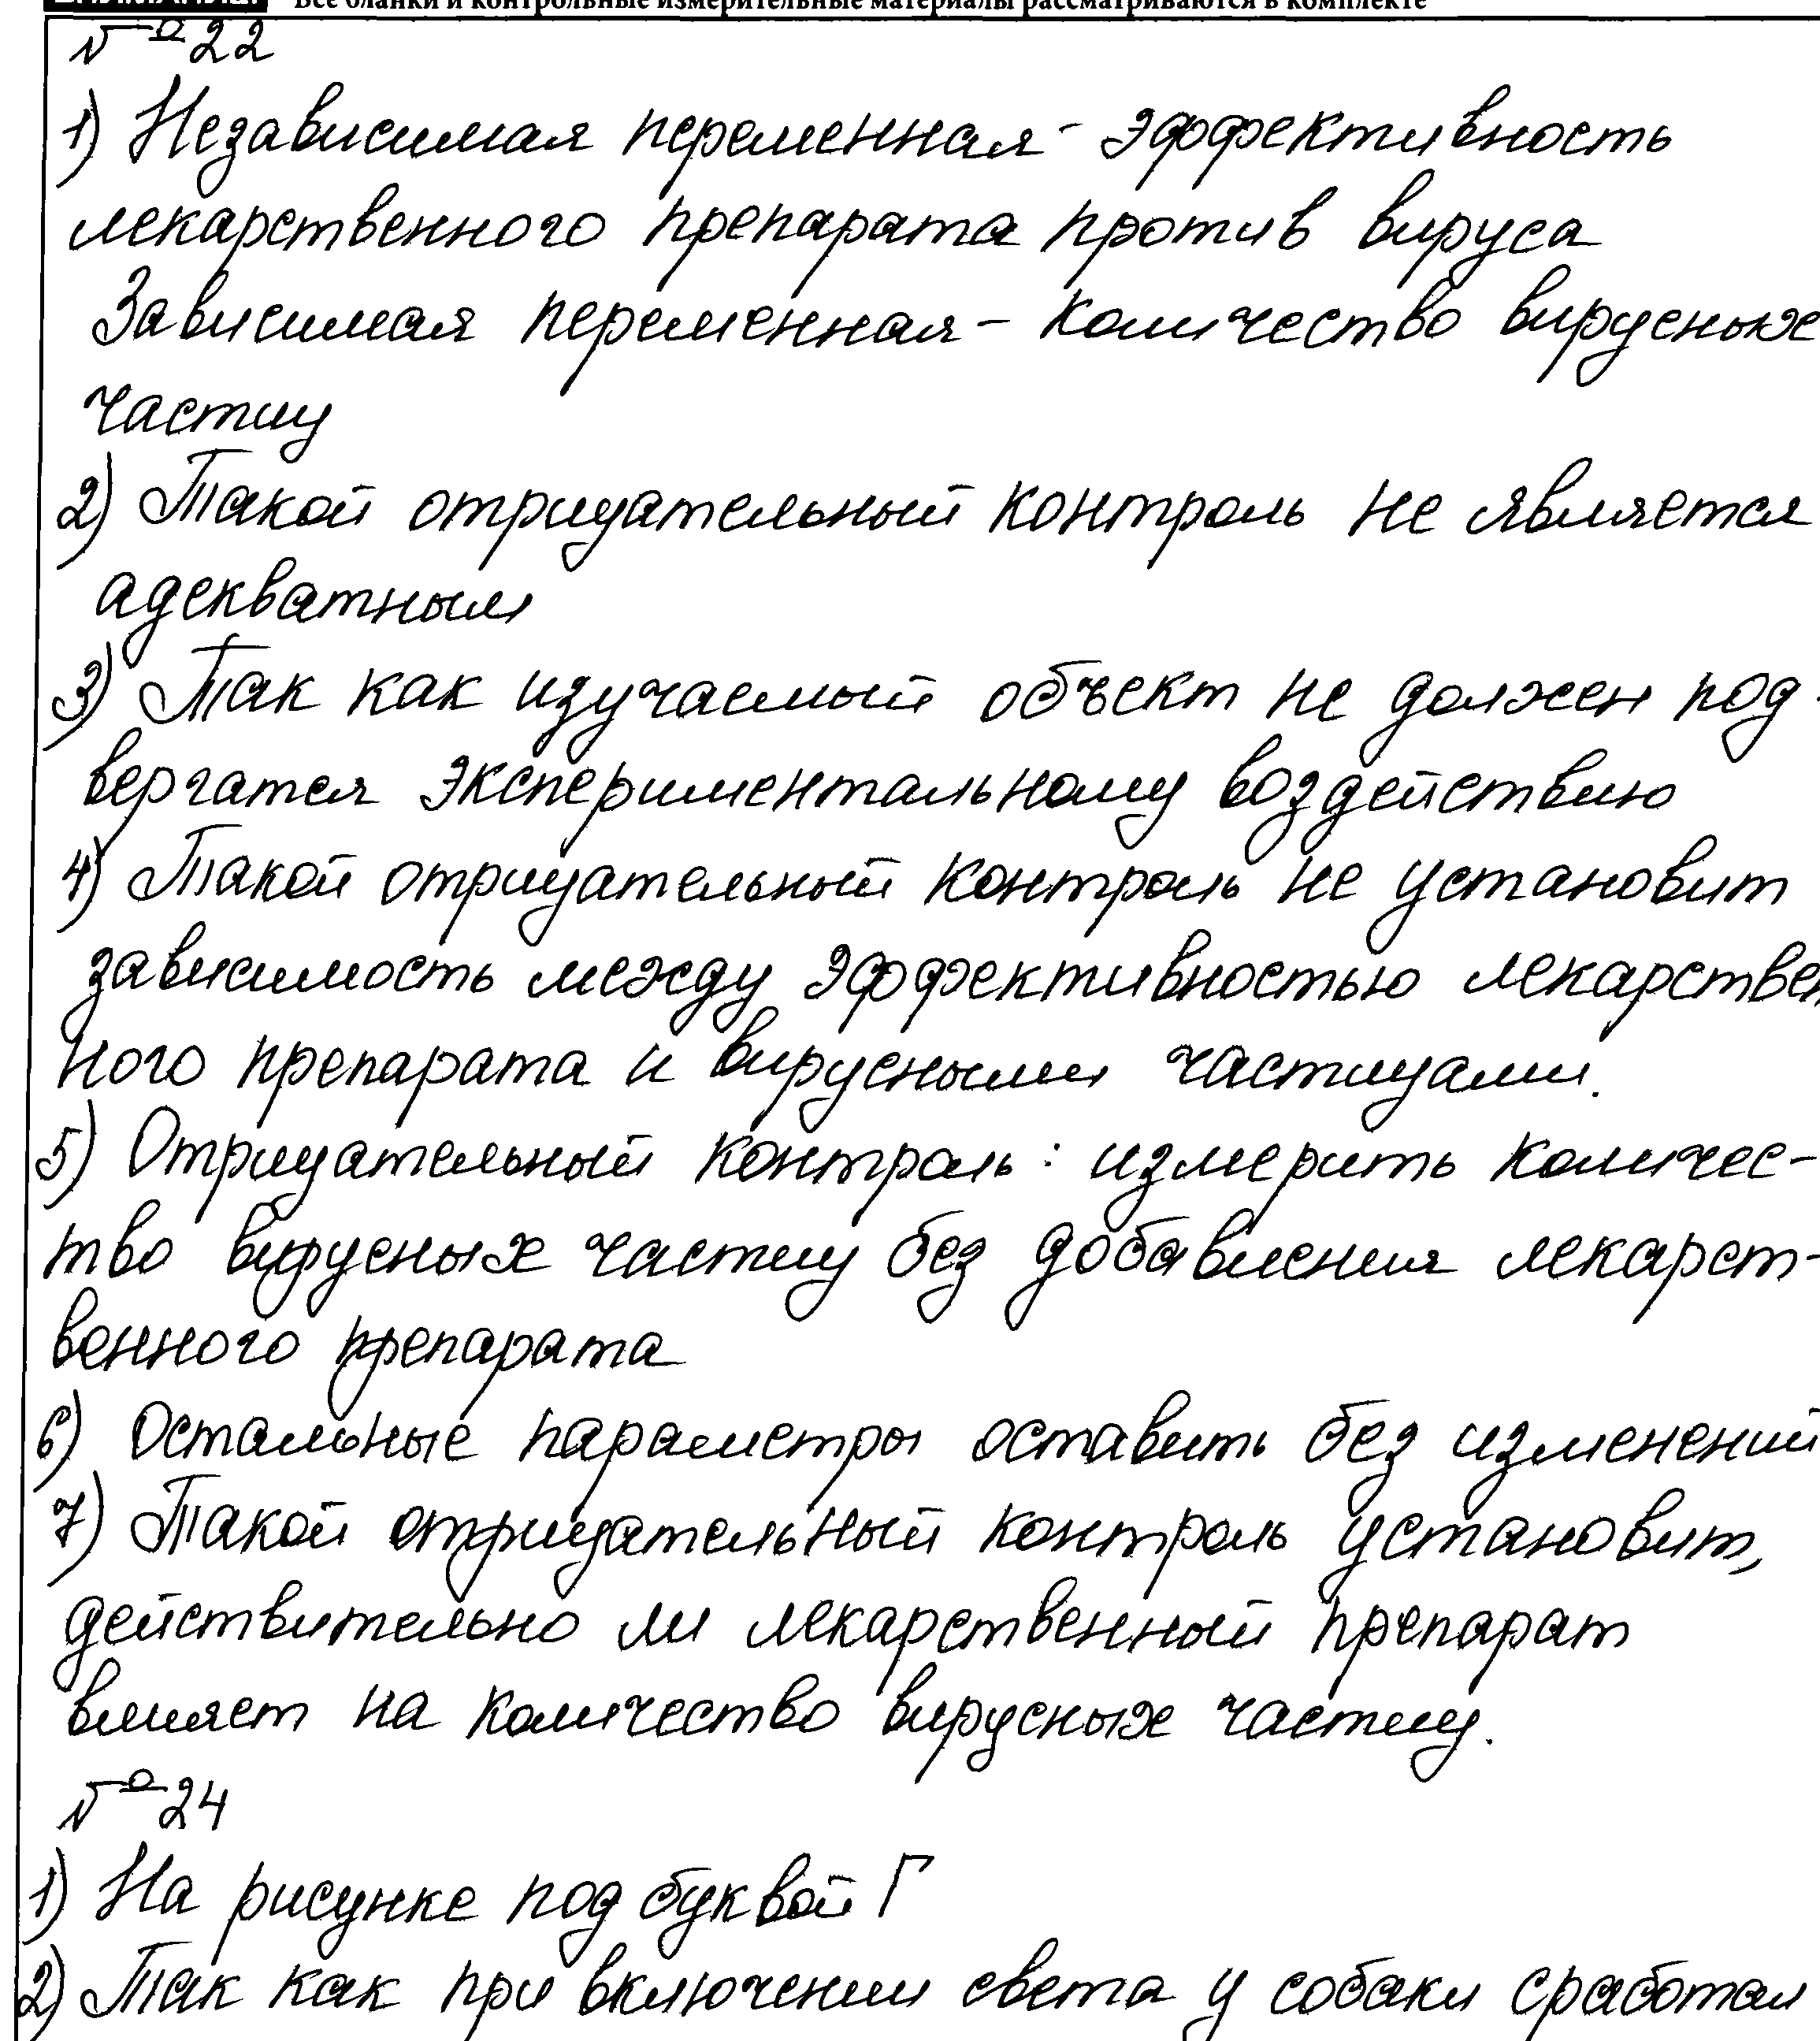 Все бланки и контрольные измерительные материалы рассматриваются в комплекте
№ 22
1) Независимая переменная - эффективность
лекарственного препарата против вируса
Зависимая переменная - количество вирусных
частиц
2) Такой отрицательный контроль не является
адекватным
3) Так как изучаемый объект не должен под-
вергатся экспериментальному воздействию
4) Такой отрицательный контроль не установит
зависимость между эффективностью лекарствен
ного препарата и вирусными частицами.
5) Отрицательный контроль: измерить количес-
тво вирусных частиц без добавления лекарст-
венного препарата
6) Остальные параметры оставить без изменений
7) Такой отрицательный контроль установит,
действительно ли лекарственный препарат
влияет на количество вирусных частиц.
№ 24
1) На рисунке под буквой Г
2) Так как при включении света у собаки сработал